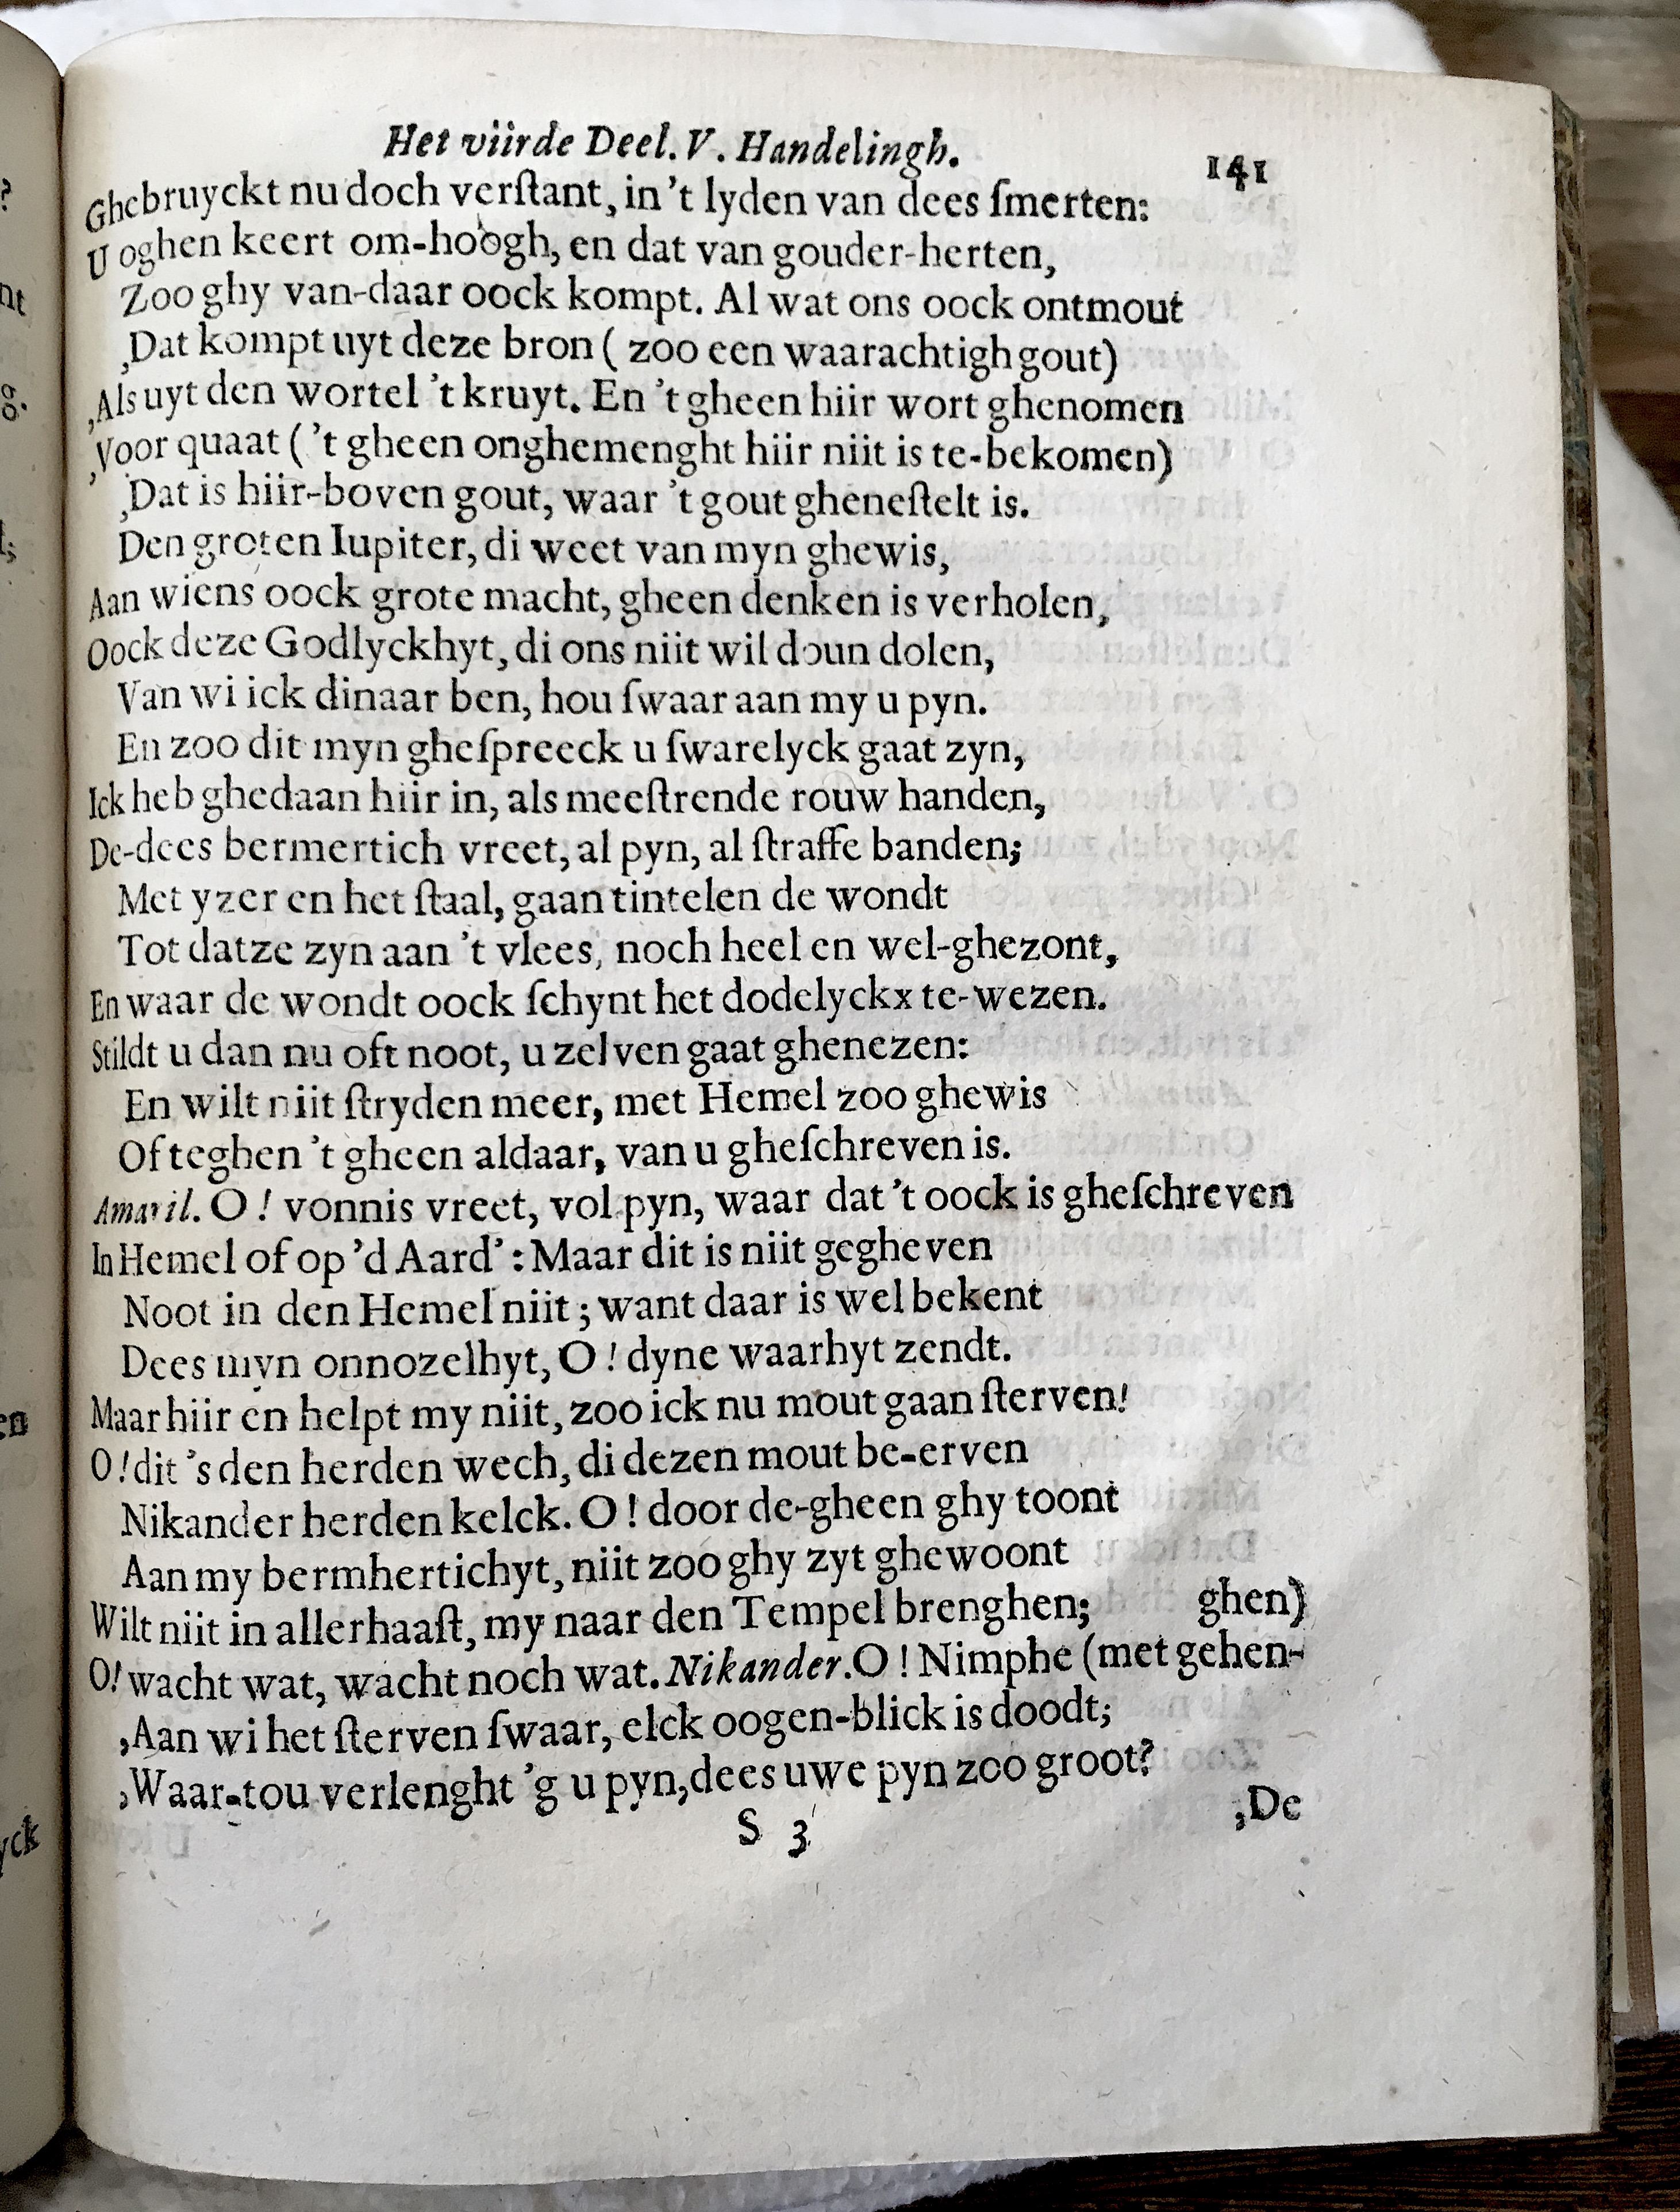 Het viirde Deel. V. Handelingh. 141
Ghebruyckt nu doch verſtant, in 't lyden van dees ſmerten:
U oghen keert om-hoogh, en dat van gouder-herten,
Zoo ghy van-daar oock kompt. Al wat ons oock ontmout
,Dat kompt uyt deze bron ( zoo een waarachtigh gout)
,Als uyt den wortel 't kruyt. En 't gheen hiir wort ghenomen
,Voor quaat ( 't gheen onghemenght hiir niit is te-bekomen)
,Dat is hiir-boven gout, waar 't gout gheneſtelt is.
Den groten Iupiter, di weet van myn ghewis,
Aan wiens oock grote macht, gheen denken is verholen,
Oock deze Godlyckhyt, di ons niit wil doun dolen,
Van wi ick dinaar ben, hou ſwaar aan my u pyn.
En zoo dit myn gheſpreeck u ſwarelyck gaat zyn,
Ick heb ghedaan hiir in, als meeſtrende rouw handen,
De-dees bermertich vreet, al pyn, al ſtraffe banden;
Met yzer en het ſtaal, gaan tintelen de wondt
Tot datze zyn aan 't vlees, noch heel en wel-ghezont,
En waar de wondt oock ſchynt het dodelyckx te-wezen.
Stildt u dan nu oft noot, u zelven gaat ghenezen:
En wilt niit ſtryden meer, met Hemel zoo ghewis
Of teghen 't gheen aldaar, van u gheſchreven is.
Amaril. O! vonnis vreet, vol pyn, waar dat 't oock is gheſchreven
In Hemel of op 'd Aard': Maar dit is niit gegheven
Noot in den Hemel niit; want daar is wel bekent
Dees myn onnozelhyt, O! dyne waarhyt zendt.
Maar hiir en helpt my niit, zoo ick nu mout gaan ſterven!
O! dit 's den herden wech, di dezen mout be-erven
Nikander herden kelck. O! door de-gheen ghy toont
Aan my bermhertichyt, niit zoo ghy zyt ghewoont
Wilt niit in allerhaaſt, my naar den Tempel brenghen; ghen)
O! wacht wat, wacht noch wat. Nikander. O! Nimphe (met gehen-
,Aan wi het ſterven ſwaar, elck oogen-blick is doodt;
,Waar-tou verlenght 'g u pyn, dees uwe pyn zoo groot?
S 3 ,De